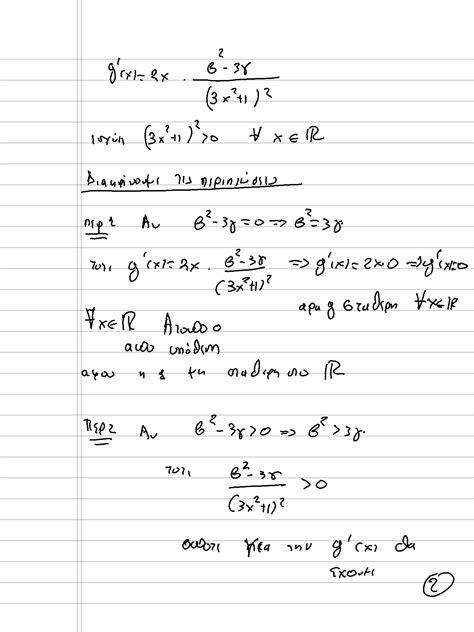 g'(x) = 2x · (β² - 3γ) / (3x² + 1)²
ισχύει (3x² + 1)² > 0 ∀ x ∈ ℝ
Διακρίνουμε τις περιπτώσεις
περ 1 Αν β² - 3γ = 0 ⇒ β² = 3γ
τότε g'(x) = 2x · (β² - 3γ) / (3x² + 1)² ⇒ g'(x) = 2x·0 ⇒ g'(x) = 0
άρα g σταθερή ∀x∈ℝ
∀x∈ℝ Άτοπο
από υπόθεση
αφού η g μη σταθερή στο ℝ
Περ 2 Αν β² - 3γ > 0 ⇒ β² > 3γ
τότε (β² - 3γ) / (3x² + 1)² > 0
οπότε για την g'(x) θα
έχουμε
2